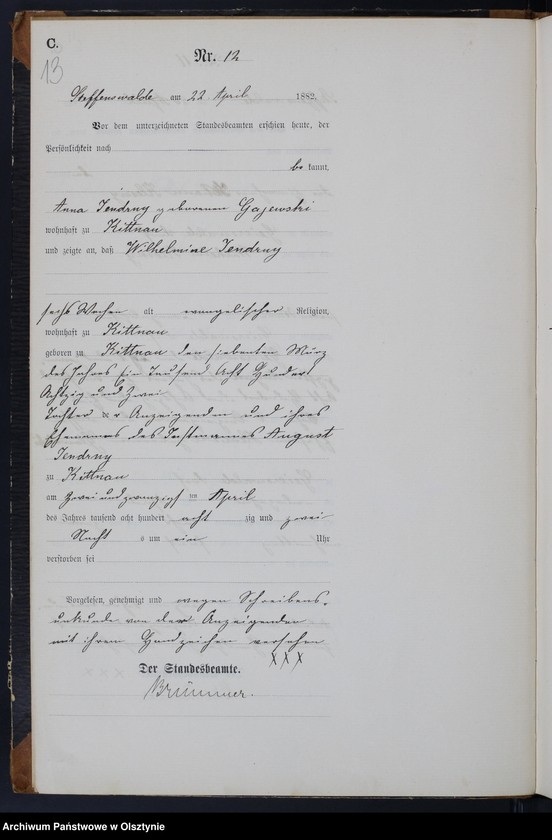 C.
13
Nr. 12
Steffenswalde am 22 April 1882.
Vor dem unterzeichneten Standesbeamten erschien heute, der
Persönlichkeit nach
be kannt,
Anna Jendrny geborenen Gajewski
wohnhaft zu Kittnau
und zeigte an, daß Wilhelmine Jendrny
sechs Wochen alt evangelischer Religion,
wohnhaft zu Kittnau
geboren zu Kittnau den siebenten März
des Jahres Ein Tausend Acht Hundert
Achtzig und Zwei
Tochter der Anzeigenden und ihres
Ehemannes des Instmannes August
Jendrny
zu Kittnau
am zwei und zwanzigst en April
des Jahres tausend acht hundert acht zig und zwei
Nacht s um ein Uhr
verstorben sei
Vorgelesen, genehmigt und wegen Schreibens-
unkunde von der Anzeigenden
mit ihrem Handzeichen versehen
XXX
Der Standesbeamte.
Brümmer.
Archiwum Państwowe w Olsztynie